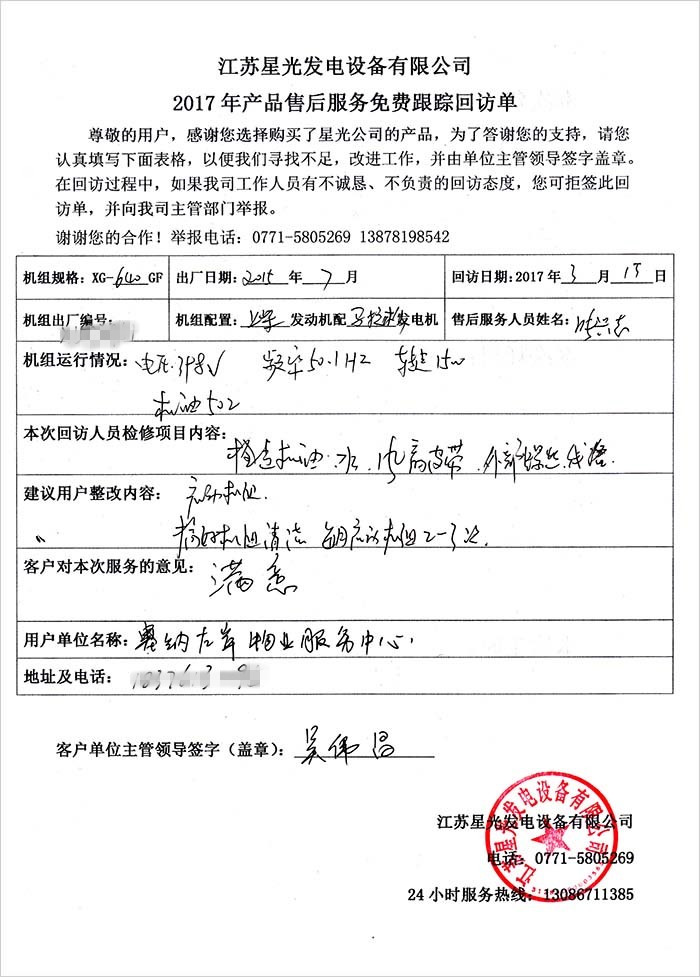 江苏星光发电设备有限公司
2017年产品售后服务免费跟踪回访单
尊敬的用户，感谢您选择购买了星光公司的产品，为了答谢您的支持，请您
认真填写下面表格，以便我们寻找不足，改进工作，并由单位主管领导签字盖章。
在回访过程中，如果我司工作人员有不诚恳、不负责的回访态度，您可拒签此回
访单，并向我司主管部门举报。
谢谢您的合作！举报电话：0771-5805269 13878198542
机组规格：XG-640GF 出厂日期：2015 年 7 月 回访日期：2017年 3 月 15 日
机组出厂编号： 机组配置：上柴 发动机配 马拉松 发电机 售后服务人员姓名：
机组运行情况：电压.398V 频率50.1HZ 转速1500
机油502
本次回访人员检修项目内容：检查机油.水.风扇皮带.外部螺丝.线路.
建议用户整改内容：启动机组.
搞好机组清洁 每月启动机组2-3次.
客户对本次服务的意见：满意
用户单位名称：塞纳左岸物业服务中心
地址及电话：
客户单位主管领导签字（盖章）：吴伟昌
江苏星光发电设备有限公司
江苏星光发电设备有限公司
电话：0771-5805269
24小时服务热线：13086711385